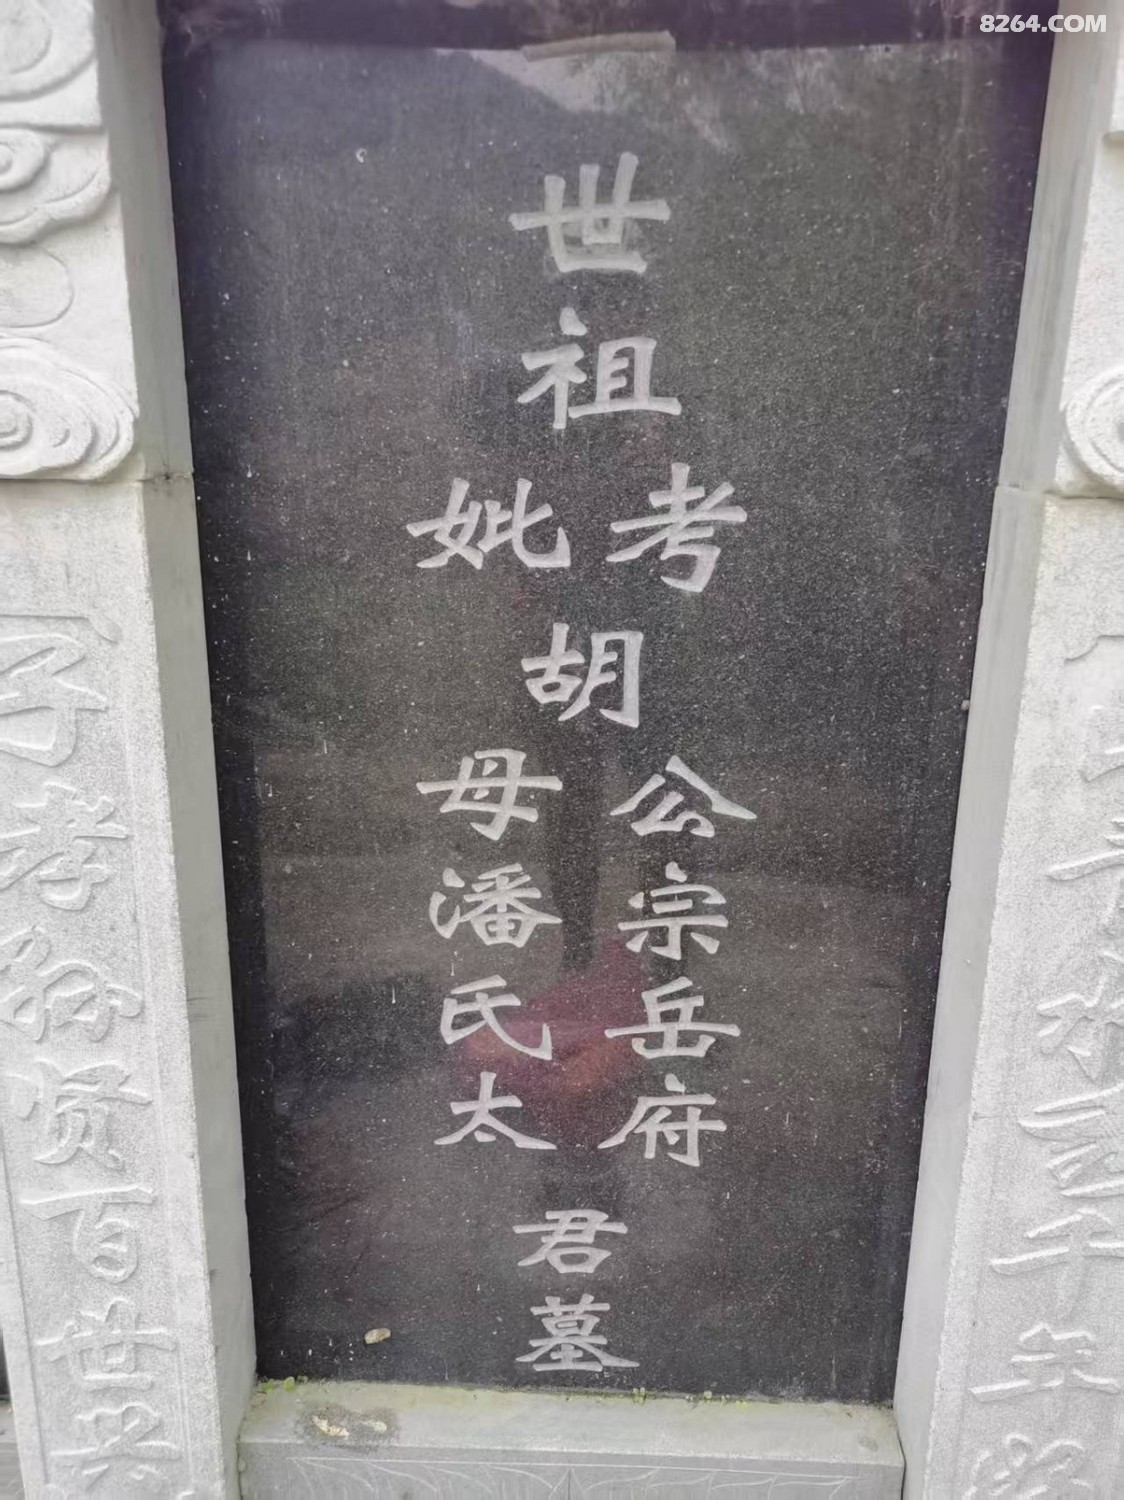 8264.COM
世祖
考妣
胡
公宗岳府
母潘氏太
君墓
子孝孙贤百世兴